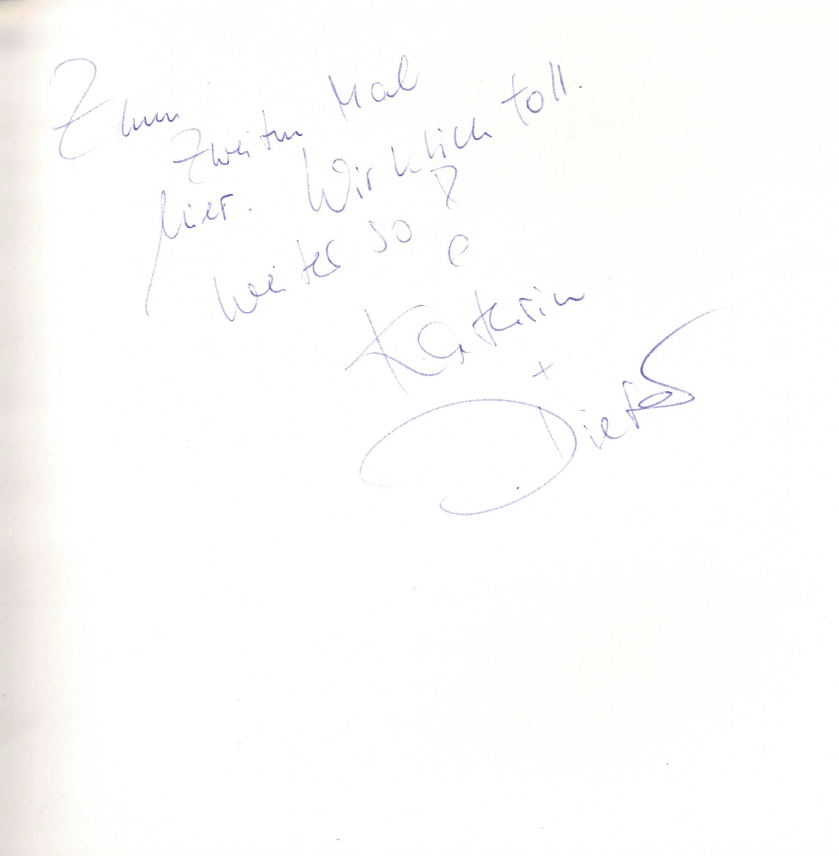 Zum
zweiten Mal
hier. Wirklich toll.
weiter so!
Kathrin
+
Dieter